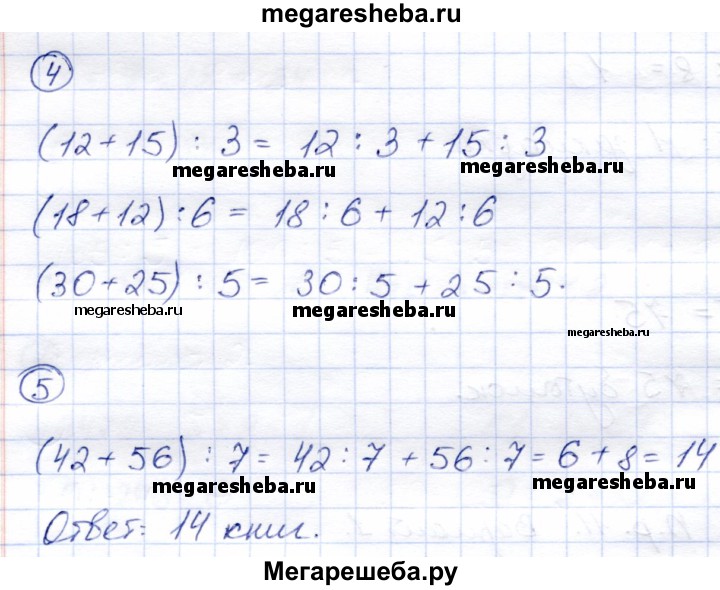 megaresheba.ru
4
(12 + 15) : 3 = 12 : 3 + 15 : 3
megaresheba.ru megaresheba.ru
(18 + 12) : 6 = 18 : 6 + 12 : 6
(30 + 25) : 5 = 30 : 5 + 25 : 5.
megaresheba.ru megaresheba.ru megaresheba.ru
5
(42 + 56) : 7 = 42 : 7 + 56 : 7 = 6 + 8 = 14
megaresheba.ru megaresheba.ru
Ответ: 14 книг.
Мегарешеба.ру